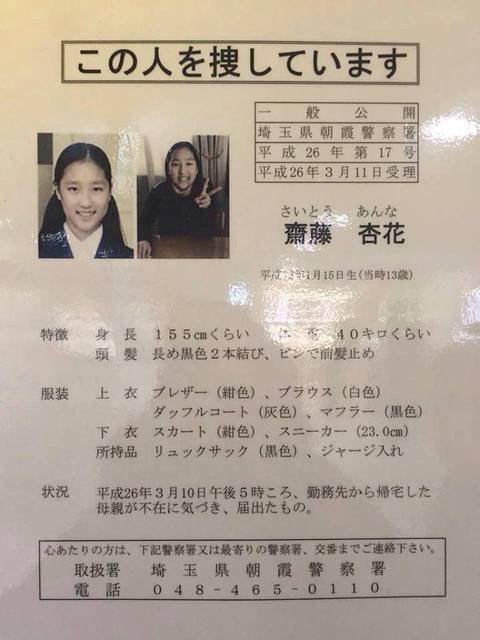 この人を捜しています
一般公開
埼玉県朝霞警察署
平成26年第17号
平成26年3月11日受理
さいとう あんな
齋藤 杏花
1月15日生(当時13歳)
特徴 身長 155㎝くらい 体 40キロくらい
頭髪 長め黒色2本結び、ピンで前髪止め
服装 上衣 ブレザー(紺色)、ブラウス(白色)
ダッフルコート(灰色)、マフラー(黒色)
下衣 スカート(紺色)、スニーカー(23.0㎝)
所持品 リュックサック(黒色)、ジャージ入れ
状況 平成26年3月10日午後5時ころ、勤務先から帰宅した
母親が不在に気づき、届出たもの。
心あたりの方は、下記警察署又は最寄りの警察署、交番までご連絡下さい。
取扱署 埼玉県朝霞警察署
電話 048-465-0110